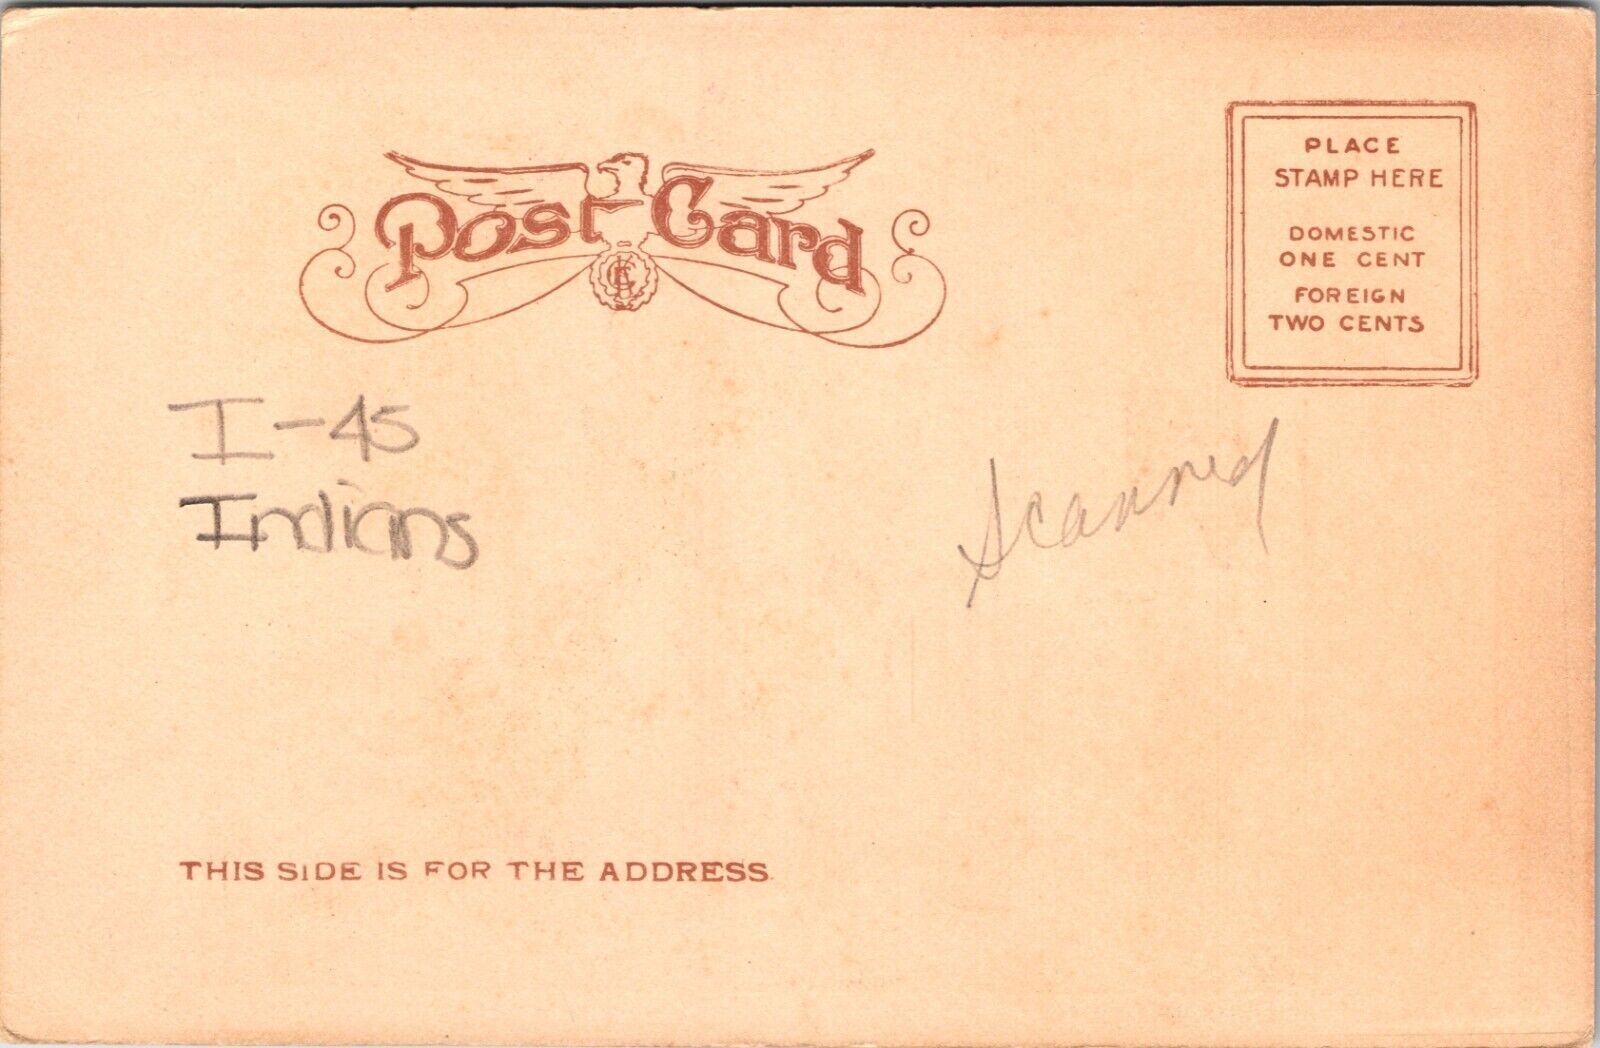 Post Card
PLACE
STAMP HERE
DOMESTIC
ONE CENT
FOREIGN
TWO CENTS
I-45
Indians
Scanned
THIS SIDE IS FOR THE ADDRESS.